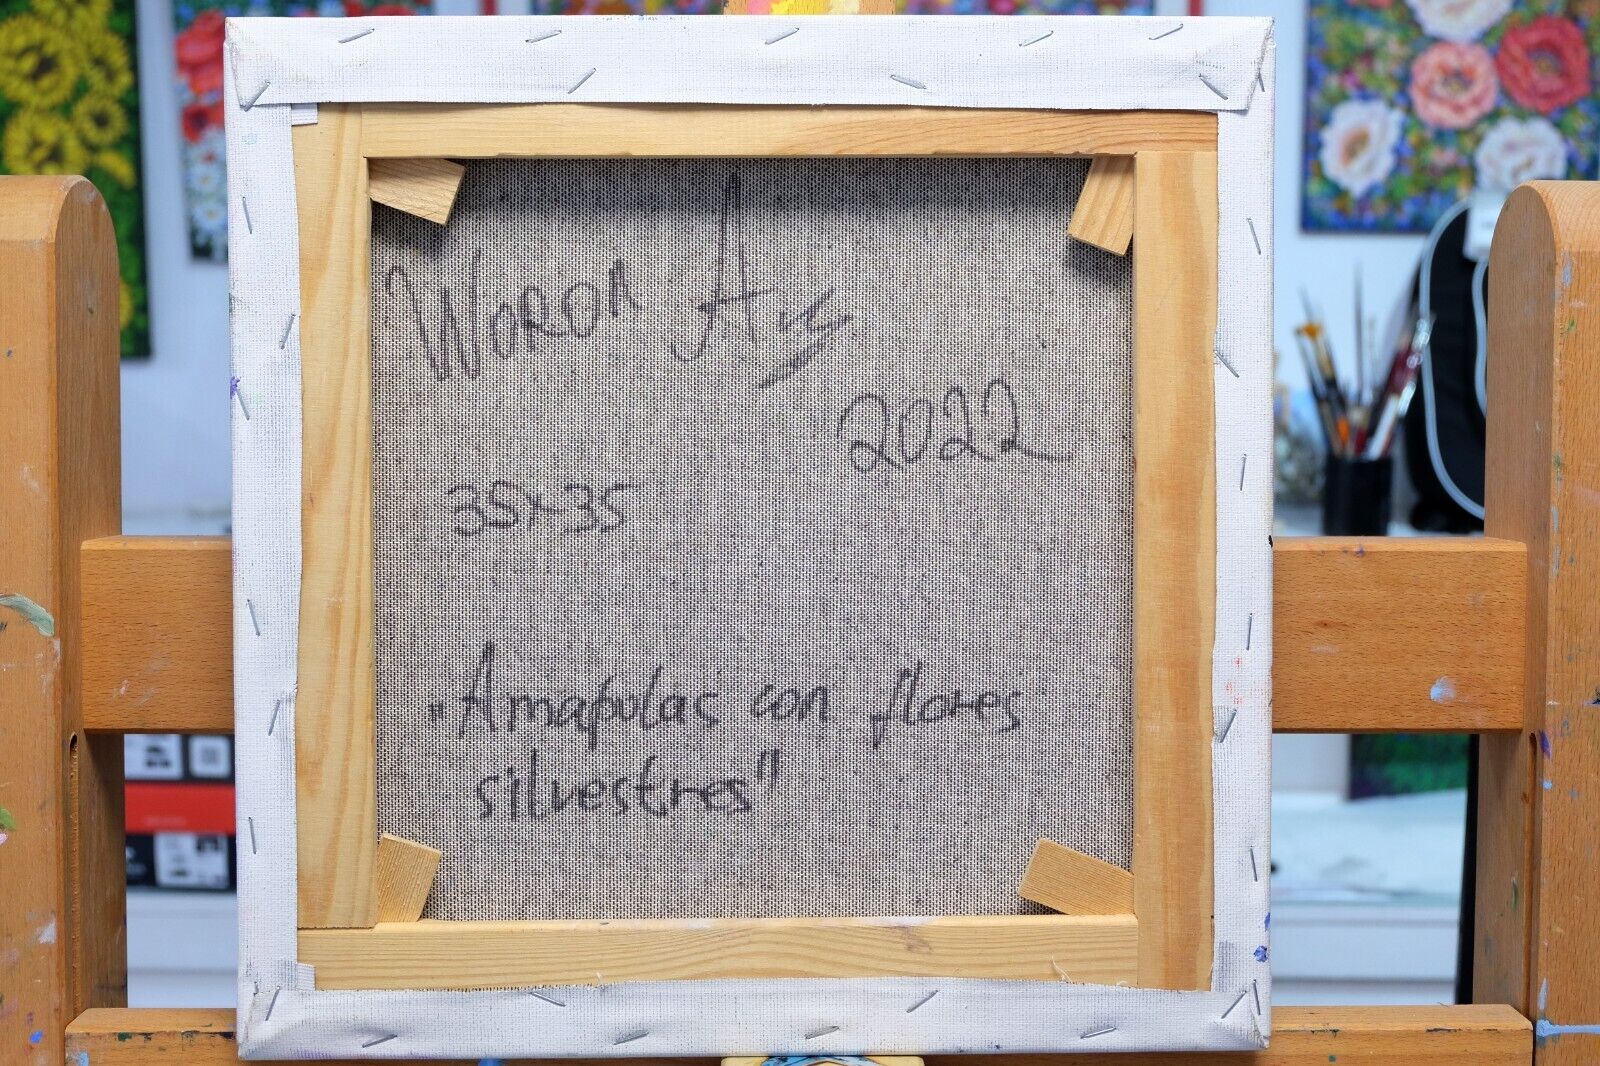 Woron A
2022
35x35
„Amapolas con flores
silvestres"